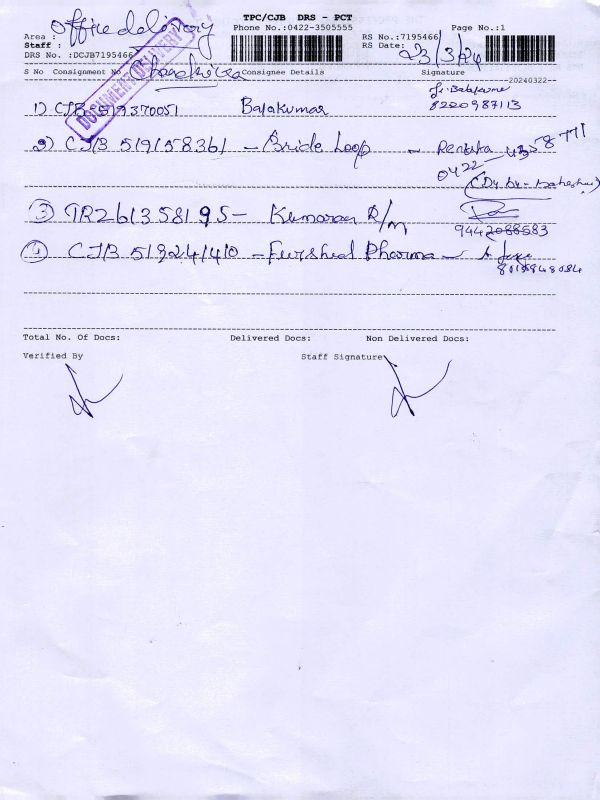 Office delivery
TPC/CJB DRS - PCT
Area :
Phone No.:0422-3505555
Page No.:1
Staff :
RS No.:7195466
DRS No. :DCJB7195466
RS Date: 23/3/24
DOCUMENT DELIVERY
S No Consignment No Consignee Details Signature
20240322
1) CJB 519370051 Balakumar
8220987113
2) CJB 519158361 - Bride Loop
0422
3) TR261358195 - Kumaran R/M
9442088583
4) CJB 519241410 - Pharma
Total No. Of Docs: Delivered Docs: Non Delivered Docs:
Verified By Staff Signature